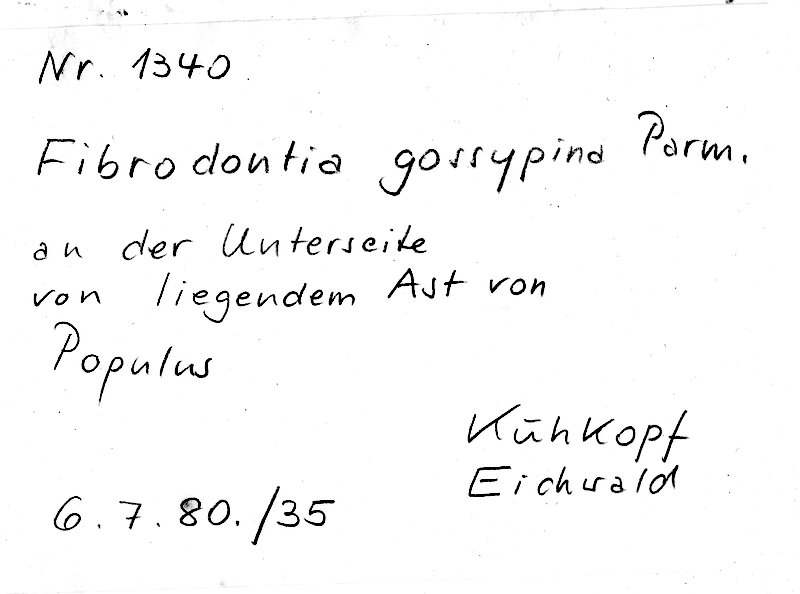 Nr. 1340
Fibrodontia gossypina Parm.
an der Unterseite
von liegendem Ast von
Populus
Kühkopf
Eichwald
6.7.80./35